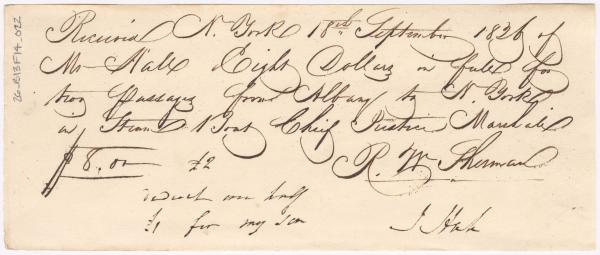 Received N. York 18th September 1826 of
Mr Hale Eight Dollars in full for
two passages from Albany to N. York
in Steam Boat Chief Justice Marshall
$8.00 £2 R. W. Sherman
deduct one half
£1 for my son J Hale
26-JB13F14_022